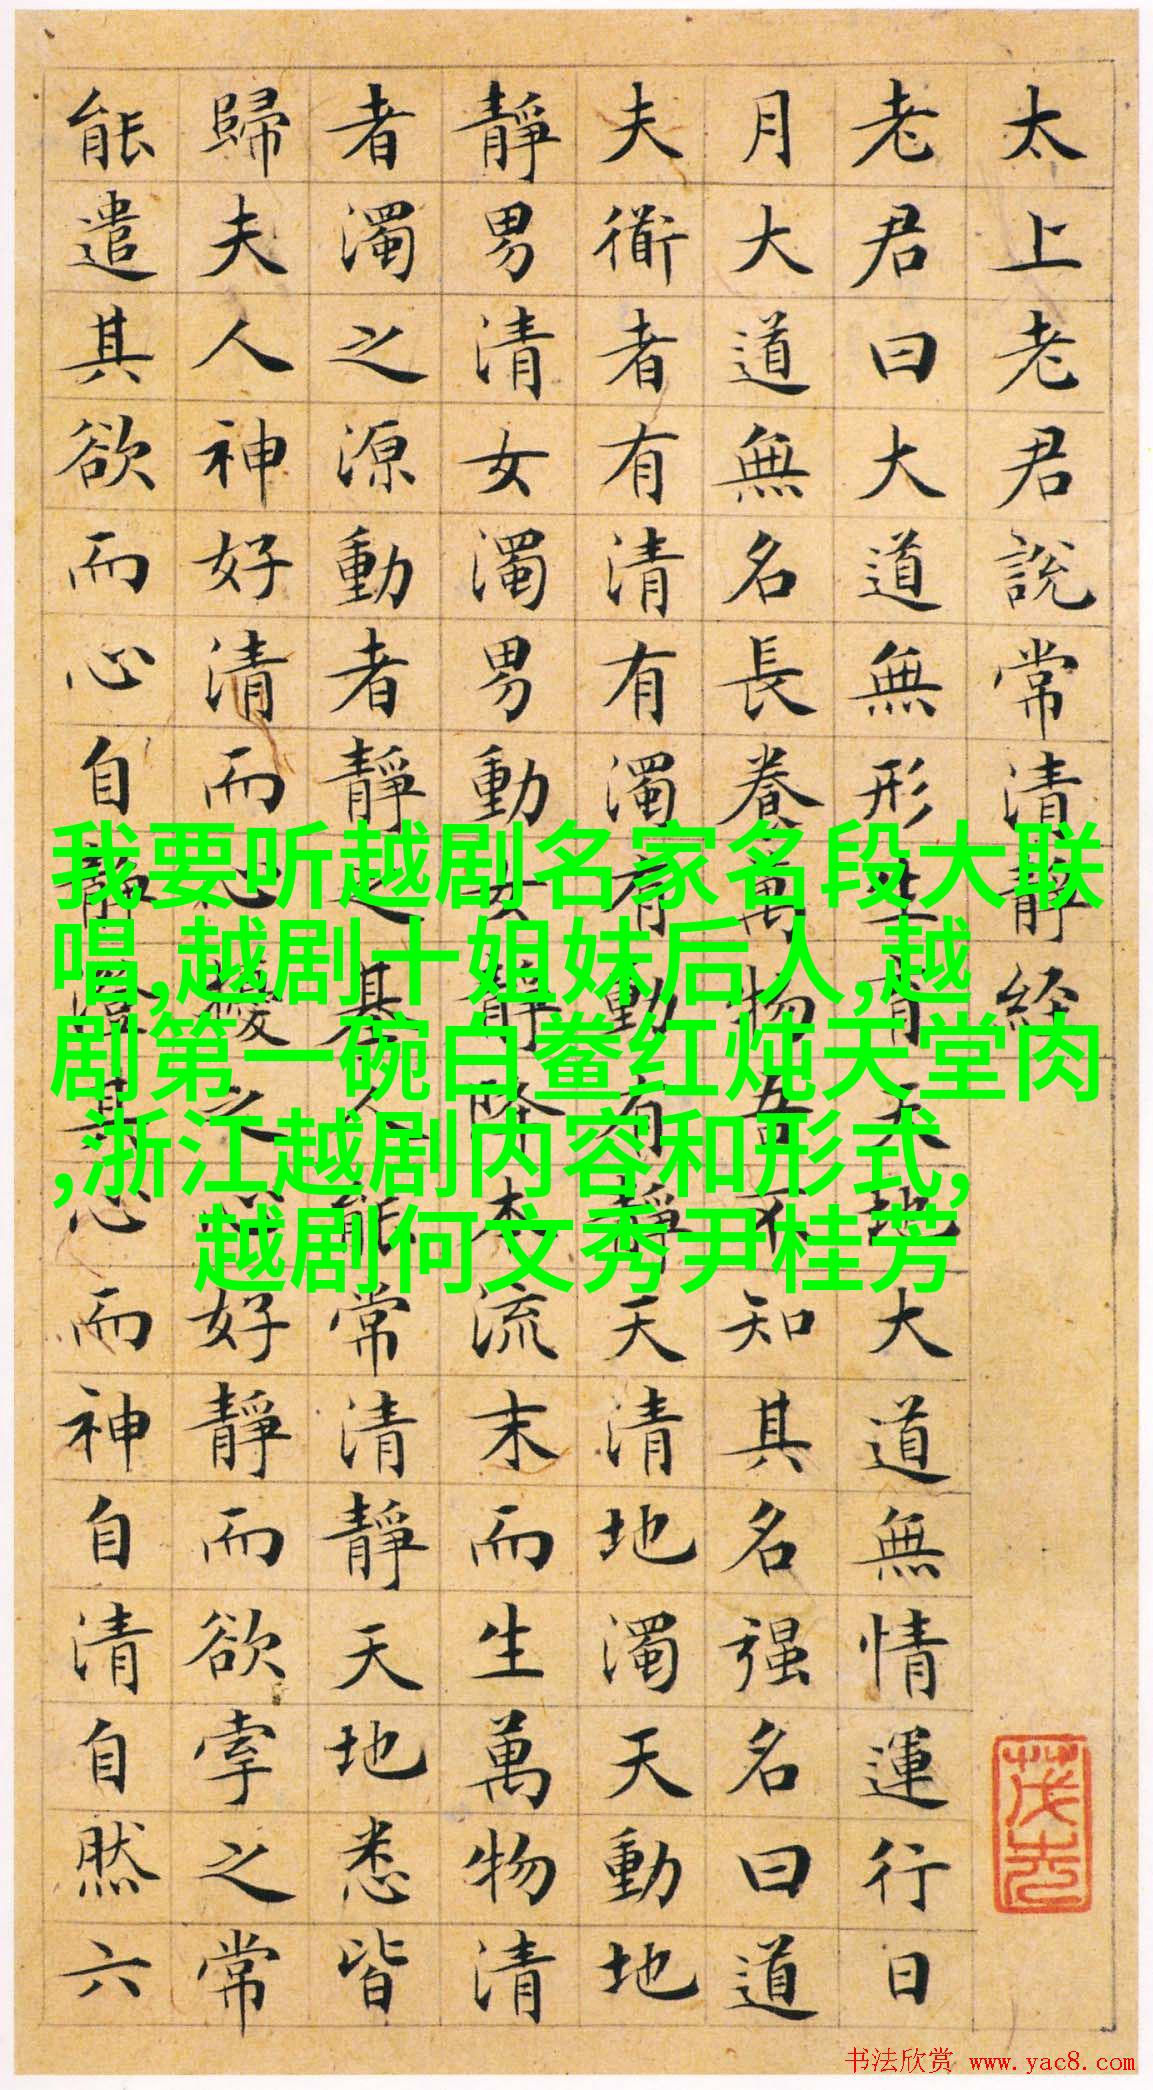 太上老君說常清靜経
老君曰大道無形生育天地大道無情運行日
月大道無名長養萬物吾不知其名强名曰道
夫衜者有清有濁有動有靜天清地濁天動地
靜男清女濁男動女靜降本流末而生萬物清
者濁之源動者靜之基人能常清靜天地悉皆
歸夫人神好清而心擾之心好靜而欲牽之常
能遣其欲而心自靜澄其心而神自清自然六
我要听越剧名家名段大联
唱,越剧十姐妹后人,越
剧第一碗白鲞红炖天堂肉
,浙江越剧内容和形式,
越剧何文秀尹桂芳
书法欣赏 www.yac8.com